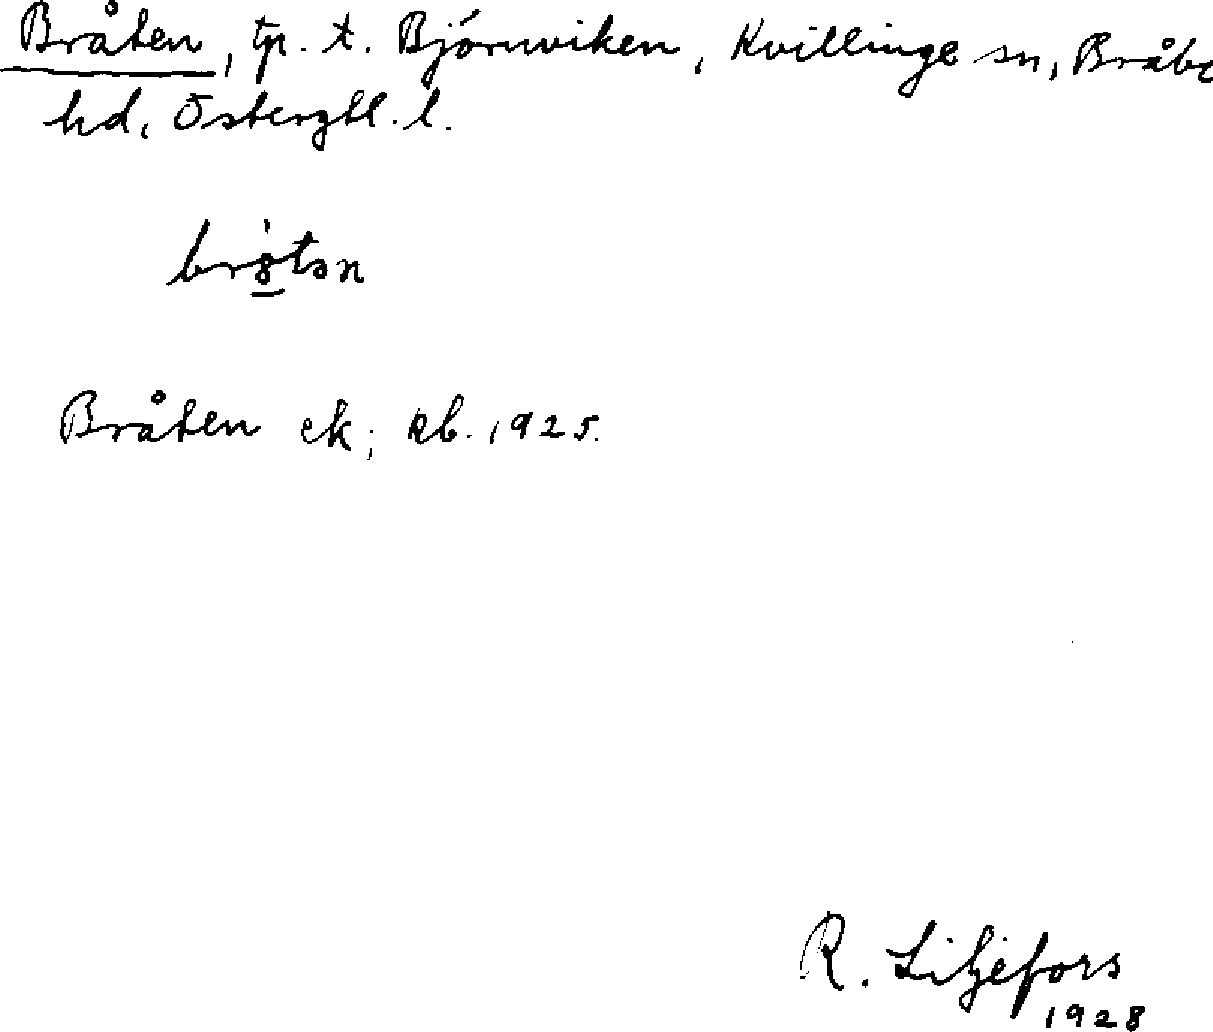 Bråten, tp. t. Björnviken, Kvillinge sn, Bråbo
hd, Östergtl. l.
Bråten ek; kb. 1925.
R. Liljefors
1928